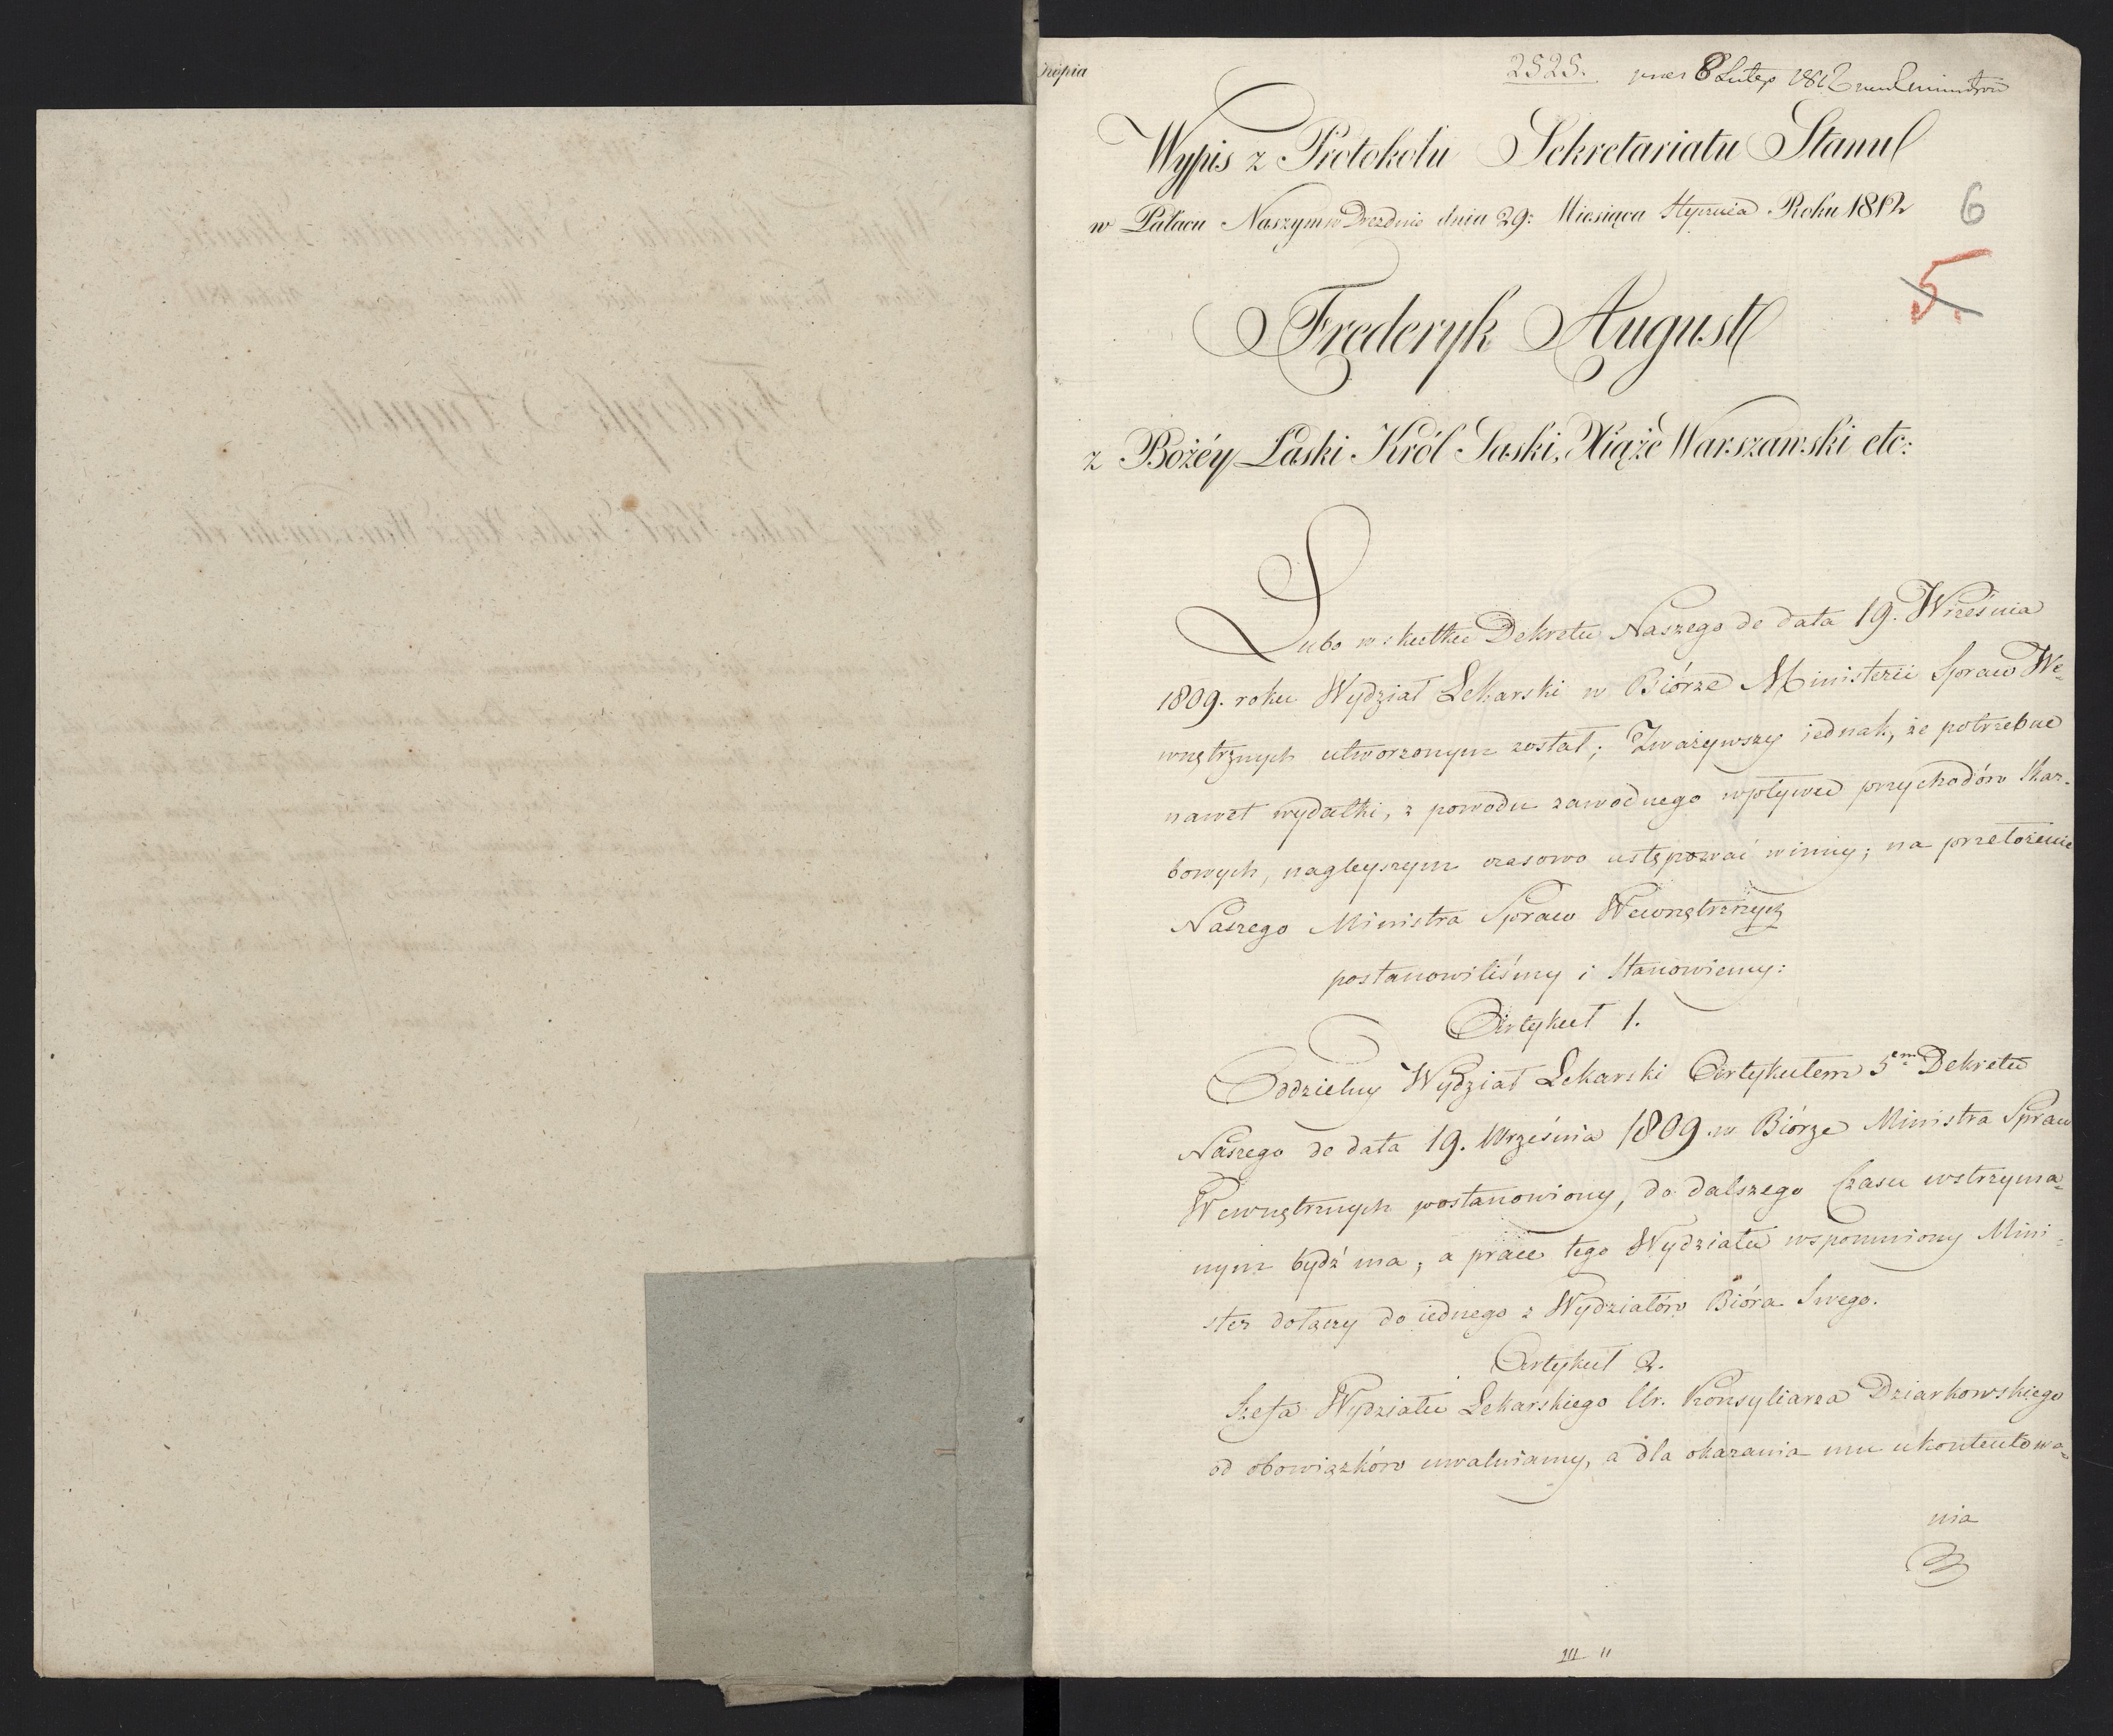 Kopia
2525. 8 Lutego 1812
Wypis z Protokołu Sekretariatu Stanu
w Pałacu Naszym w Dreznie dnia 29: Miesiąca Stycznia Roku 1812
6
5.
Frederyk August
z Bożéy Łaski Król Saski, Xiąże Warszawski etc:
Lubo w skutku Dekretu Naszego de data 19. Września
1809. roku Wydział Lekarski w Biórze Ministerii Spraw We-
wnętrznych utworzonym został; Zważywszy iednak, że potrzebne
nawet wydatki, z powodu zawodnego wpływu przychodów Skar-
bowych, nagleyszym czasowo ustępować winny; na przełożenie
Naszego Ministra Spraw Wewnętrznych
postanowiliśmy i Stanowiemy:
Artykuł 1.
Oddzielny Wydział Lekarski Artykułem 5em Dekretu
Naszego de data 19. Września 1809 w Biórze Ministra Spraw
Wewnętrznych postanowiony, do dalszego Czasu wstrzyma-
nym bydź ma, a prace tego Wydziału wspomniony Mini-
ster dołączy do iednego z Wydziałów Bióra Swego.
Artykuł 2.
Szefa Wydziału Lekarskiego Ur. Konsyliarza Dziarkowskiego
od obowiązków uwalniamy, a dla okazania mu ukontentowa-
nia
III 11